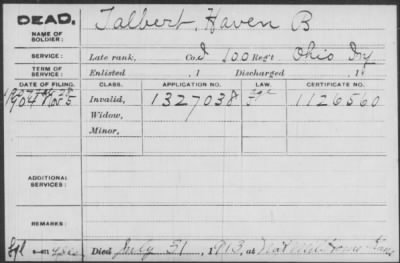 DEAD.
NAME OF SOLDIER:
Talbert, Haven B
SERVICE:
Late rank, Co. I 100 Reg't Ohio Inf
TERM OF SERVICE:
Enlisted , 1 Discharged , 1
DATE OF FILING. CLASS. APPLICATION NO. LAW. CERTIFICATE NO.
1904 Nov. 5 Invalid, 1327038 1126560
Widow,
Minor,
ADDITIONAL SERVICES:
REMARKS:
Died July 31, 1913, at Nat Mil Home Kans